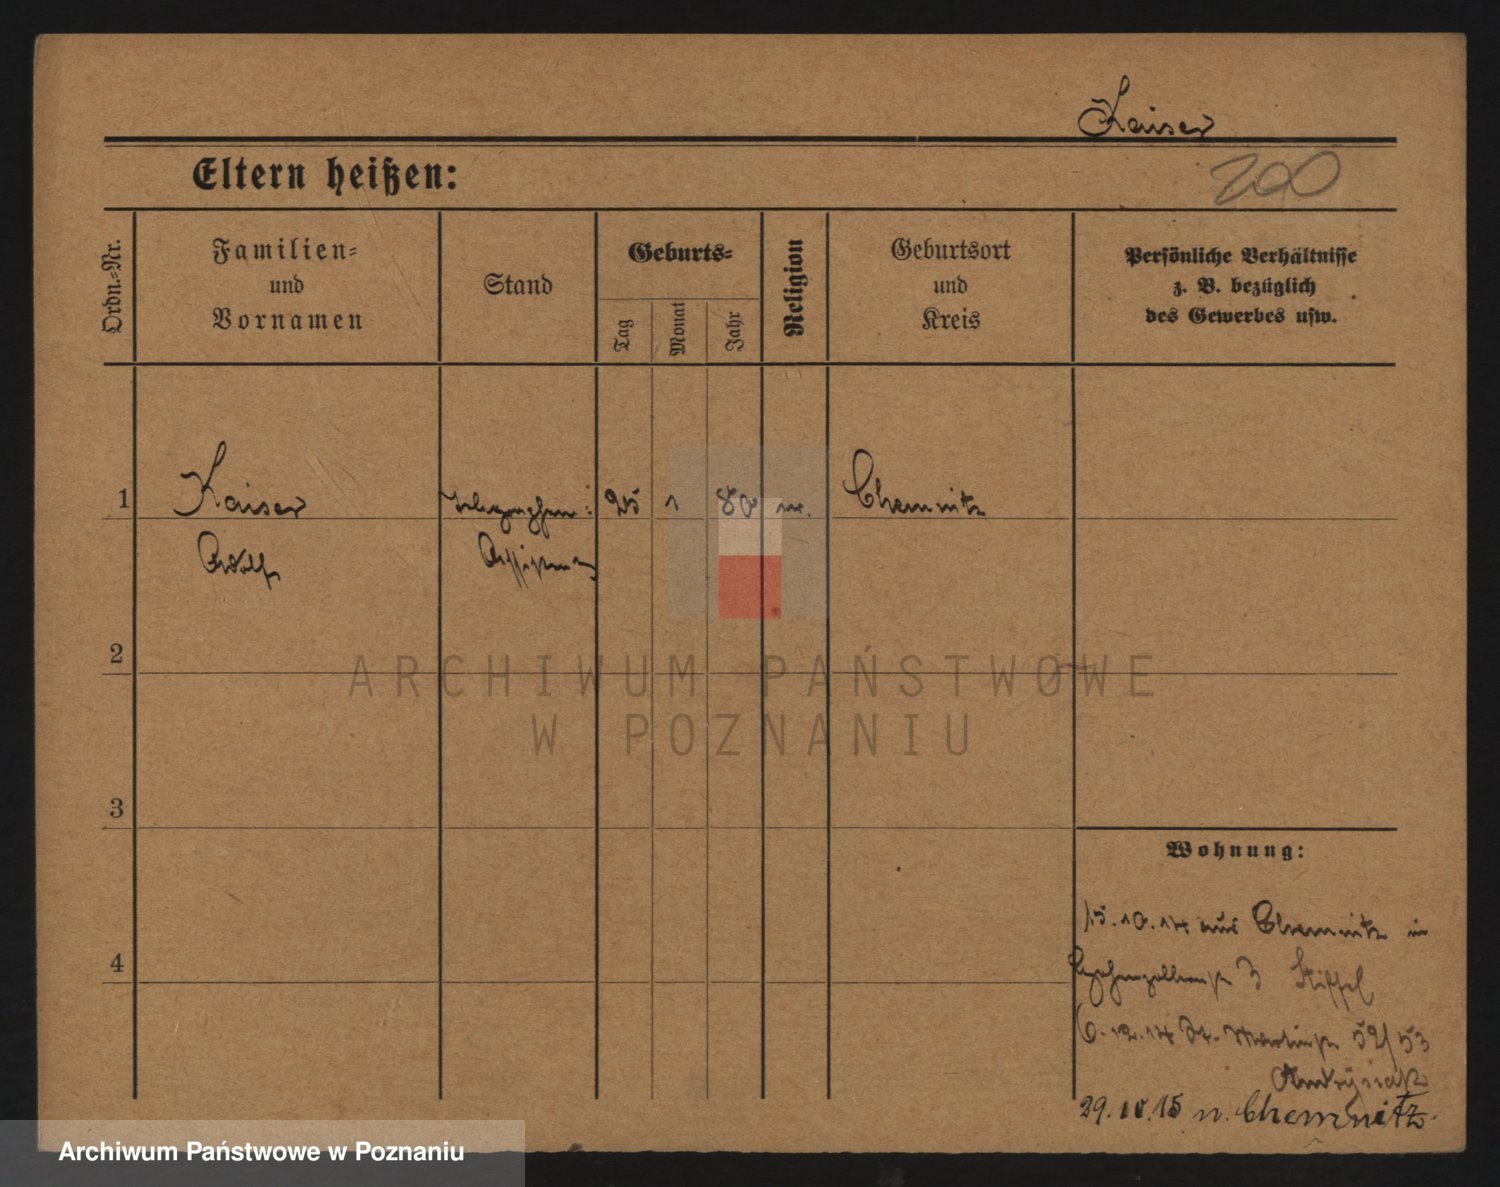 Kaiser
Eltern heißen:
200
Ordn.=Nr.
Familien=
und
Vornamen
Stand
Geburts=
Tag
Monat
Jahr
Religion
Geburtsort
und
Kreis
Persönliche Verhältnisse
z. B. bezüglich
des Gewerbes usw.
1 Kaiser Telegraphen= 25 1 80 Chemnitz
Adolf Assistent
2
ARCHIWUM PAŃSTWOWE
W POZNANIU
3
Wohnung:
15.10.14 aus Chemnitz in
4
Hohenzollernstr 3 Stiffel
6.12.14 St. Martinstr 52/53
29.10.15 n. Chemnitz.
Archiwum Państwowe w Poznaniu